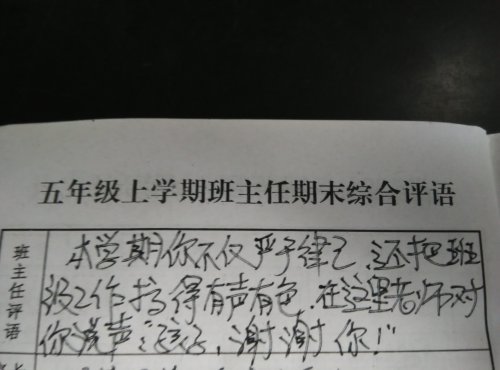 五年级上学期班主任期末综合评语
班主任评语
本学期你不仅严于律己,还把班
级工作搞得有声有色,在这里老师对
你说声:"谢谢,谢谢你!"